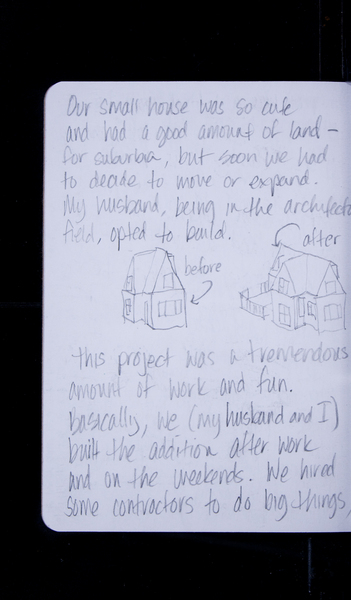 Our small house was so cute
and had a good amount of land –
for suburbia, but soon we had
to decide to move or expand.
My husband, being in the architect
field, opted to build.
after
before
This project was a tremendous
amount of work and fun.
Basically, we (my husband and I)
built the addition after work
and on the weekends. We hired
some contractors to do big things,